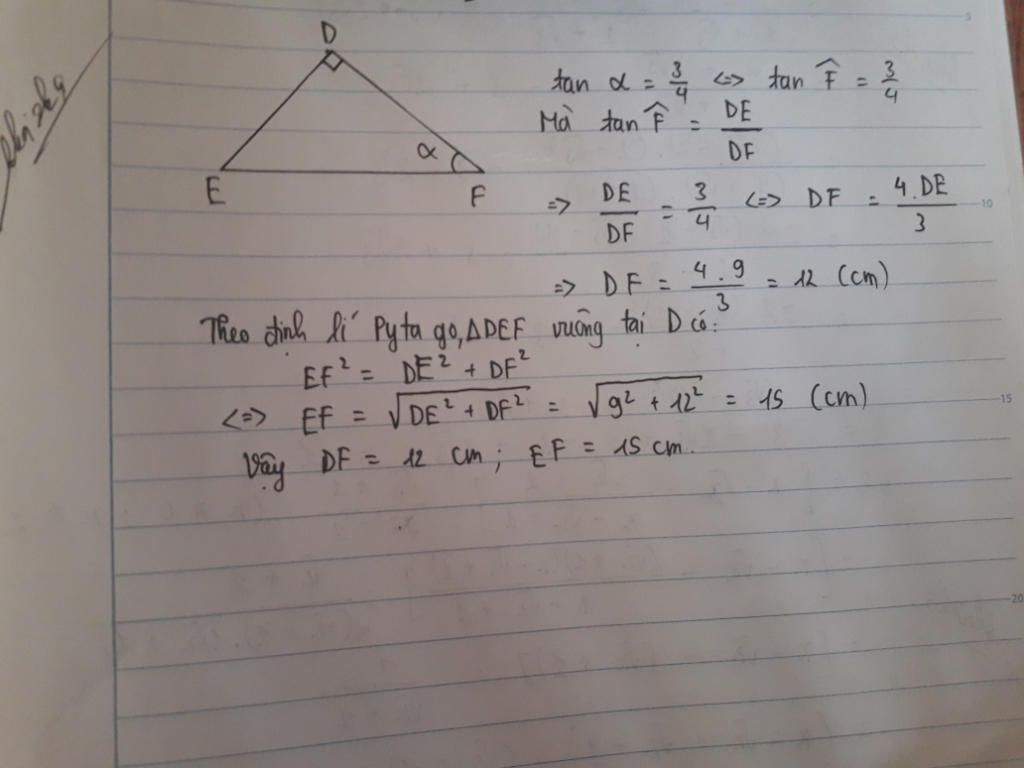 D
α
E
F
tan α = 3/4 <=> tan F̂ = 3/4
Mà tan F̂ = DE/DF
=> DE/DF = 3/4 <=> DF = 4.DE/3
=> DF = 4.9/3 = 12 (cm)
Theo định lí Pytago, ΔDEF vuông tại D có:
EF² = DE² + DF²
<=> EF = √(DE² + DF²) = √(9² + 12²) = 15 (cm)
Vậy DF = 12 cm; EF = 15 cm.
5
10
15
20